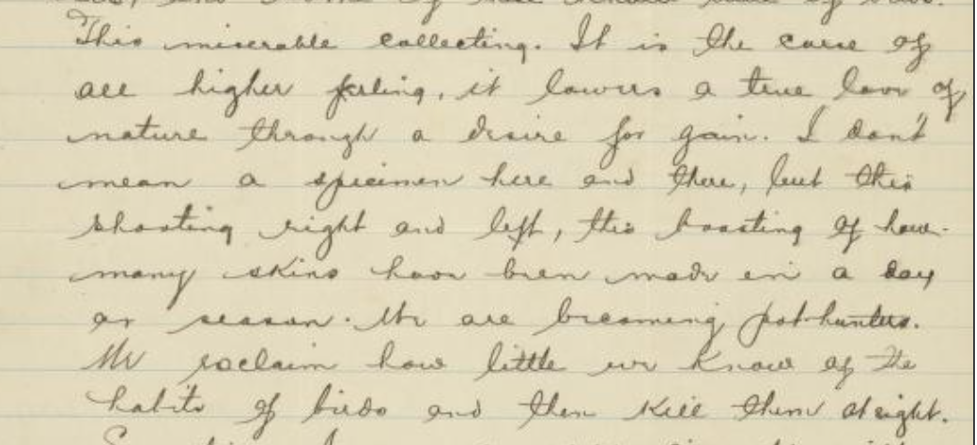 This miserable collecting. It is the curse of
all higher feeling, it lowers a true love of
nature through a desire for gain. I don't
mean a specimen here and there, but this
shooting right and left, this boasting of how
many skins have been made in a day
or season. We are becoming pot-hunters.
We exclaim how little we know of the
habits of birds and then kill them at sight.